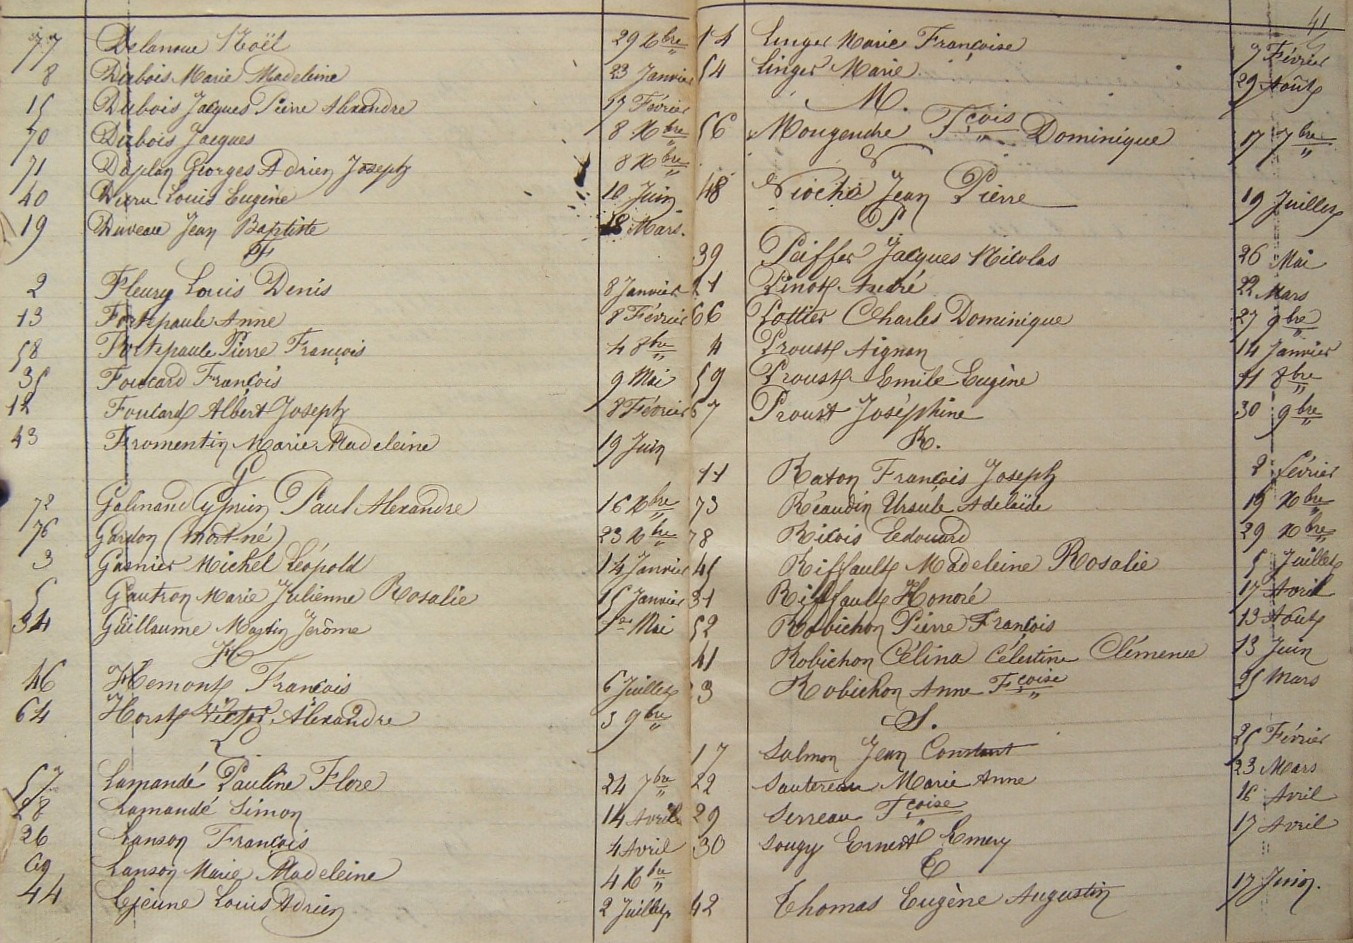 77 Delanoue Noël 29 Xbre
8 Dubois Marie Madeleine 23 Janvier
15 Dubois Jacques Pierre Alexandre 17 Février
70 Dubois Jacques 8 Xbre
71 Duplan Georges Adrien Joseph 8 Xbre
40 Duru Louis Eugène 10 Juin
19 Duveau Jean Baptiste 18 Mars.
F
2 Fleury Louis Denis 8 Janvier
13 Fortepaule Anne 8 Février
58 Fortepaule Pierre François 4 8bre
35 Foucard François 9 Mai
12 Foulard Albert Joseph 8 Février
43 Fromentin Marie Madeleine 19 Juin
G
72 Galinand Cyprien Paul Alexandre 16 Xbre
76 Gordon (mort né) 23 Xbre
3 Gasnier Michel Léopold 14 Janvier
5 Gautron Marie Julienne Rosalie 15 Janvier
34 Guillaume Martin Jérôme 1er Mai
H
46 Hemont François 6 Juillet
64 Horst Victor Alexandre 3 9bre
L
57 Lamandé Pauline Flore 24 7bre
28 Lamandé Simon 14 Avril
26 Lanson François 4 Avril
69 Lanson Marie Madeleine 4 Xbre
44 Lejeune Louis Adrien 2 Juillet
41
14 Linger Marie Françoise 7 Février
54 Linger Marie 29 Août
M.
56 Mougendre Fçois Dominique 17 7bre
48 Viocher Jean Pierre 19 Juillet
P
39 Peiffer Jacques Nicolas 26 Mai
21 Pinot André 22 Mars
66 Pottier Charles Dominique 27 9bre
4 Proust Aignan 14 Janvier
59 Proust Emile Eugène 11 8bre
67 Proust Joséphine 30 9bre
R.
11 Raton François Joseph 2 Février
73 Réaudin Ursule Adelaïde 19 Xbre
78 Ricois Edouard 29 Xbre
45 Riffault Madeleine Rosalie 5 Juillet
31 Riffault Honoré 17 Avril
52 Robichon Pierre François 13 Août
41 Robichon Célina Célestine Clémence 13 Juin
23 Robichon Anne Fçoise 25 Mars
S.
17 Salmon Jean Constant 25 Février
22 Sautereau Marie Anne 23 Mars
29 Serreau Fçoise 16 Avril
30 Sougy Ernest Emery 17 Avril
T
42 Thomas Eugène Augustin 17 Juin.